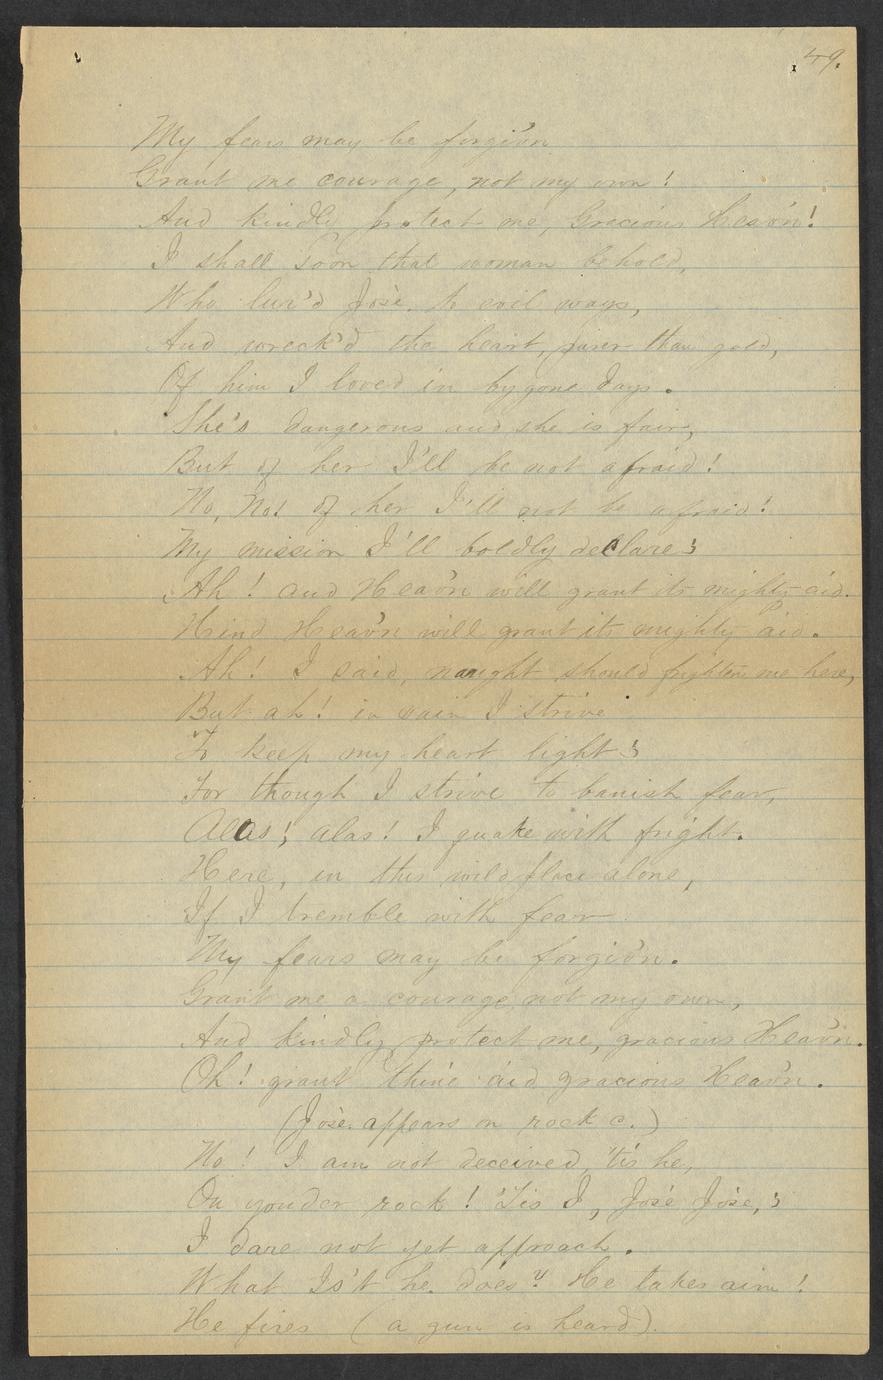 49.
My fears may be forgiv'n
Grant me courage, not my own!
And kindly protect me, Gracious Heav'n!
I shall soon that woman behold,
Who lur'd José to evil ways,
And wreck'd the heart, purer than gold,
Of him I loved in bygone days.
She's dangerous and she is fair,
But of her I'll be not afraid!
No, No! of her I'll not be afraid!
My mission I'll boldly declare;
Ah! and Heav'n will grant its mighty aid.
Kind Heav'n will grant its mighty aid.
Ah! I said, naught should frighten me here,
But ah! in vain I strive
To keep my heart light;
For though I strive to banish fear,
Alas! alas! I quake with fright.
Here, in this wild place alone,
If I tremble with fear
My fears may be forgiv'n.
Grant me a courage not my own,
And kindly protect me, gracious Heav'n.
Oh! grant thine aid gracious Heav'n.
(José appears on rock c.)
No! I am not deceived, 'tis he,
On yonder rock! 'Tis I, José José,;
I dare not yet approach.
What Is't he does? He takes aim!
He fires (a gun is heard).